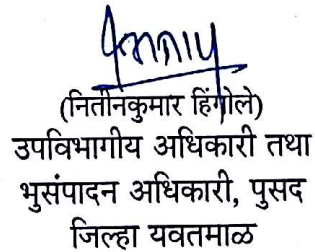 (नितीनकुमार हिंगोले)
उपविभागीय अधिकारी तथा
भुसंपादन अधिकारी, पुसद
जिल्हा यवतमाळ